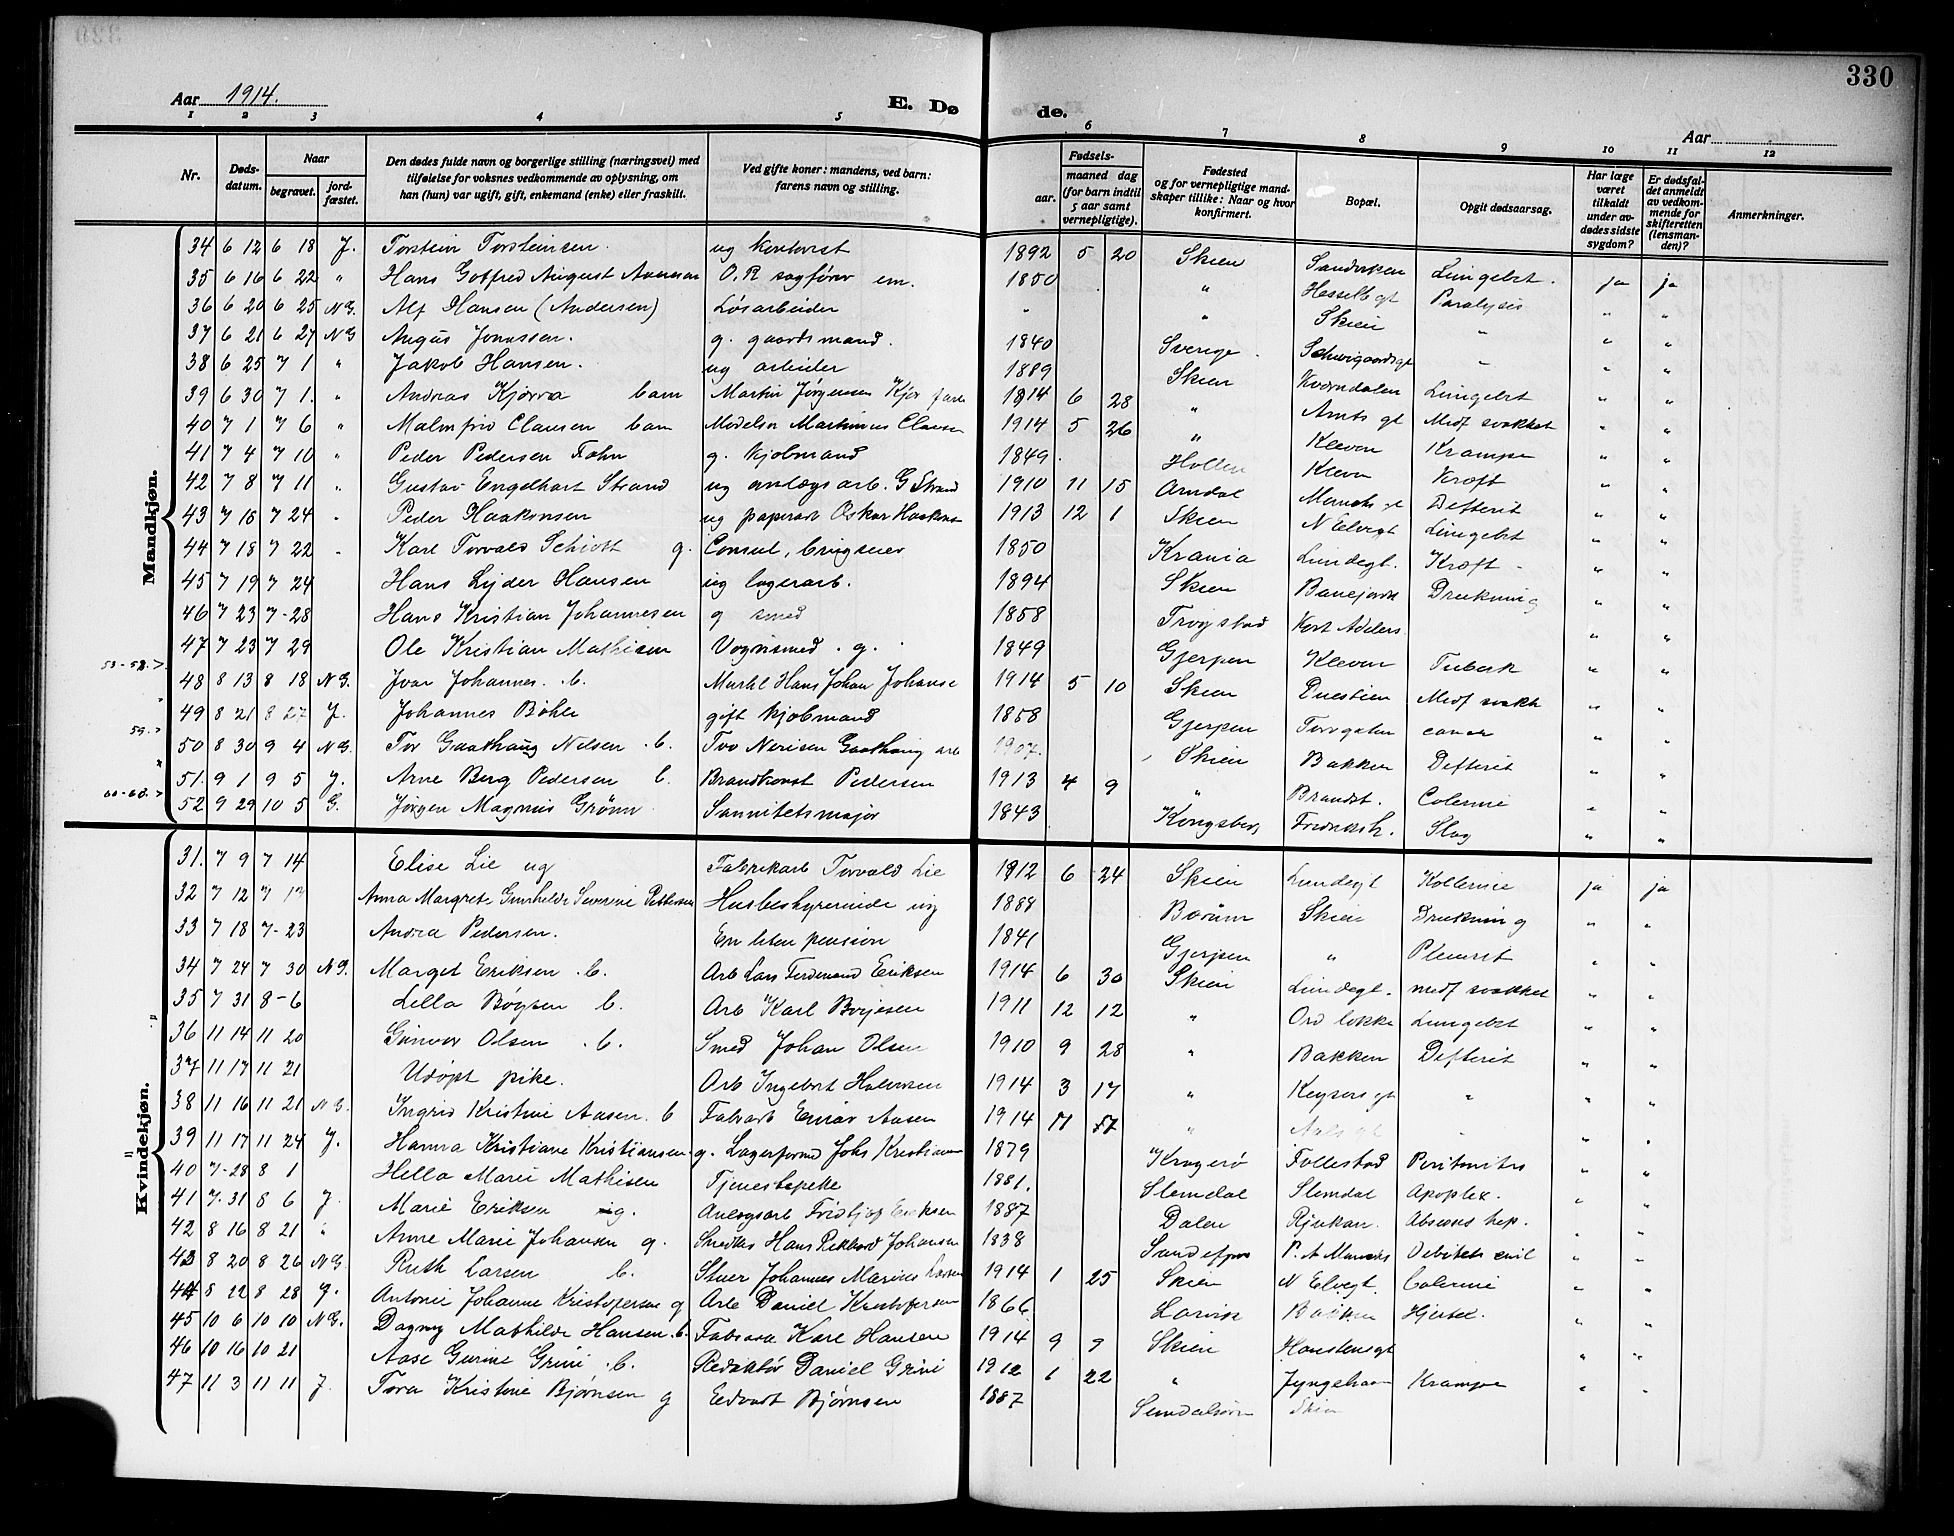 330
Aar 1914.
E. Dø de.
Aar
1 2 3 4 5 6 7 8 9 10 11 12
Nr. Døds-datum. Naar begravet. jord-fæstet. Den dødes fulde navn og borgerlige stilling (næringsvei) med tilføielse for voksnes vedkommende av oplysning, om han (hun) var ugift, gift, enkemand (enke) eller fraskilt. Ved gifte koner: mandens, ved barn: farens navn og stilling. Fødsels- aar. maaned dag (for barn indtil 5 aar samt vernepligtige). Fødested og for vernepligtige mandskaper tillike: Naar og hvor konfirmert. Bopæl. Opgit dødsaarsag. Har læge været tilkaldt under avdødes sidste sygdom? Er dødsfaldet anmeldt av vedkommende for skifteretten (lensmanden)? Anmerkninger.
Mandkjøn.
34 6 12 6 18 J. Torstein Torsteinsen. ug kontorist 1892 5 20 Skien Sandviken Lungebet. ja ja
35 6 16 6 22 " Hans Gotfred August Aamesen O.R sagfører em. 1850 " Hesselb gt Paralysis " "
36 6 20 6 25 N G. Alf Hansen (Andersen) Løsarbeider " " Skien " " "
37 6 21 6 27 N G Jonassen. g. gaardsmand. 1840 Sverige Schweigaardsgt " " "
38 6 25 7 1 " Jakob Hansen. ug arbeider 1889 Skien Kverndalen Lungebet " "
39 6 30 7 1. " Andreas barn Martin Jørgensen 1914 6 28 " Amts gt Medf svakhet " "
40 7 1 7 6 " Malmfrid Clausen barn Martinius Clausen 1914 5 26 " Kleven Krampe " "
41 7 4 7 10 " Peder Pedersen g. kjøbmand 1849 Hollen Kleven Kræft " "
42 7 8 7 11 " Gustav Engelhart Strand ug anlægsarb. G Strand 1910 11 15 Arndal gt Defterit " "
43 7 15 7 24 " Peder Haakonsen ug papirarb Oskar Haakons 1913 12 1 Skien N Elvegt Lungebet " "
44 7 18 7 22 " Karl Torvald Schiøtt g. Consul, brugseier 1850 Krania Lundegt. Kræft " "
45 7 19 7 24 Hans Lyder Hansen ug lagerarb. 1894 Skien Drukning " "
46 7 23 7-28 Hans Kristian Johannesen g smed 1858 Trøgstad Kort Adelers " "
47 7 23 7 29 Ole Kristian Mathisen Vognsmed. g. 1849 Gjerpen Kleven Tuberk " "
53-58.>
48 8 13 8 18 N G. Ivar Johannes. b. Hans Johan Johanse 1914 5 10 Skien Medf svakh " "
49 8 21 8 27 J. Johannes Bøhle gift kjøbmand 1858 Gjerpen Torvgaten cancer " "
59.>
50 8 30 9 4 N G. Tor Gaathaug Nilsen. b. Gaathaug arb 1907. Skien Bakken Defterit " "
51. 9 1 9 5 J. Arne Berg Pedersen b. Brandkonst Pedersen 1913 4 9 " Brandst. Colerine " "
60-68.>
52 9 29 10 5 G. Jørgen Magnus Grønn Sannitetsmajor 1843 Kongsberg Slag " "
Kvindekjøn.
31. 7 9 7 14 Elise Lie ug Fabrikarb Torvald Lie 1912 6 24 Skien Lundegt Kollerine ja ja
32 7 12 7 Anna Margrete Gunhilde Severine Pettersen Husbestyrerinde ug 1888 Bærum Skien Drukning " "
33 7 18 7-23 Andrea Pedersen. En liten pension 1841 Gjerpen " Pleurit " "
34 7 24 7 30 N G. Marget Eriksen. b. Arb Lars Ferdinand Eriksen 1914 6 30 Skien Lundegt. medf svakhet " "
35 7 31 8-6 Lilla b. Arb Karl 1911 12 12 " Lungebet " "
36 11 14 11 20 Gunvor Olsen. b. Smed Johan Olsen 1910 9 28 " Bakken Defterit " "
37 11 17 11 21 Udøpt pike. Arb Ingebert Halvorsen 1914 3 17 " Keysers gt " " "
38 11 16 11 21 N G. Ingrid Kristine Aasen. b Fabrarb Einar Aasen 1914 17 " " "
39 11 17 11 24 J. Hanna Kristiane Kristiansen. g. Lagerformd Johs Kristiansen 1879 Kragerø Follestad Peritonitis " "
40 7-28 8 1 Hella Marie Mathisen Tjenestepike 1881. Slemdal Slemdal Apoplex. " "
41 7. 31 8 6 J. Marie Eriksen g. Anlegsarb Fridtjof Eriksen 1887 Dalen Rjukan. Absces hep. " "
42 8 16 8 21 " Anne Marie Johansen g. Smedks Hans Rikhard Johansen 1838 Sandefjord " "
43 8 20 8 26 N G. Ruth Larsen b. Stuer Johannes Marius Larsen 1914 1 25 Skien N Elvegt. Colerine " "
44 8 22 8 28 J. Antonie Johanne Kristofersen g Arb Daniel Kristofersen 1866 Larvik Bakken Hjertef. " "
45 10 6 10 10 N G. Dagny Mathilde Hansen. b. Karl Hansen 1914 9 9 Skien " "
46 10 16 10 21 Aase Gurine Grini. b. Redaktør Daniel Grini 1912 1 22 " Krampe " "
47 11 3 11 11 J. Tora Kristine Bjørnsen g Edvart Bjørnsen 1887 Skien